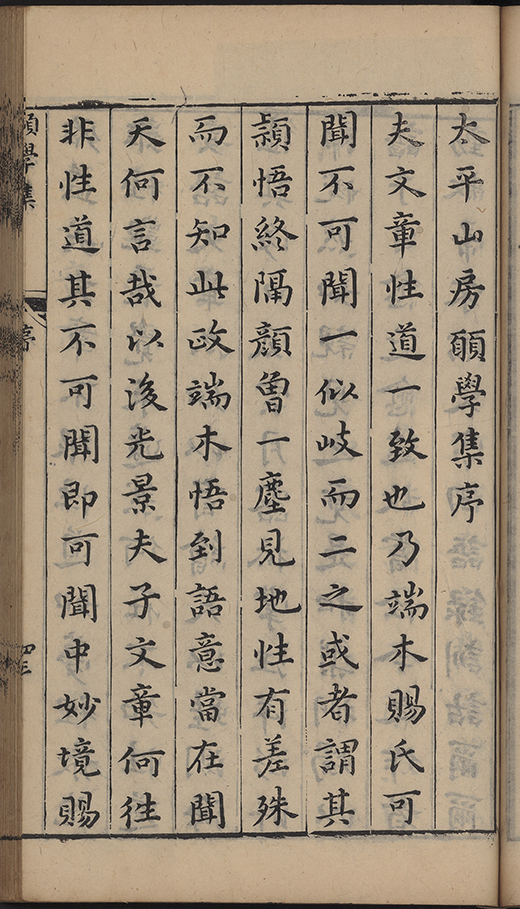 太平山房願學集序
夫文章性道一致也乃端木賜氏可
聞不可聞一似岐而二之或者謂其
頴悟終隔顔曾一塵見地性有差殊
而不知此政端木悟到語意當在聞
天何言哉以後光景夫子文章何徃
非性道其不可聞即可聞中妙境賜
願學集
序